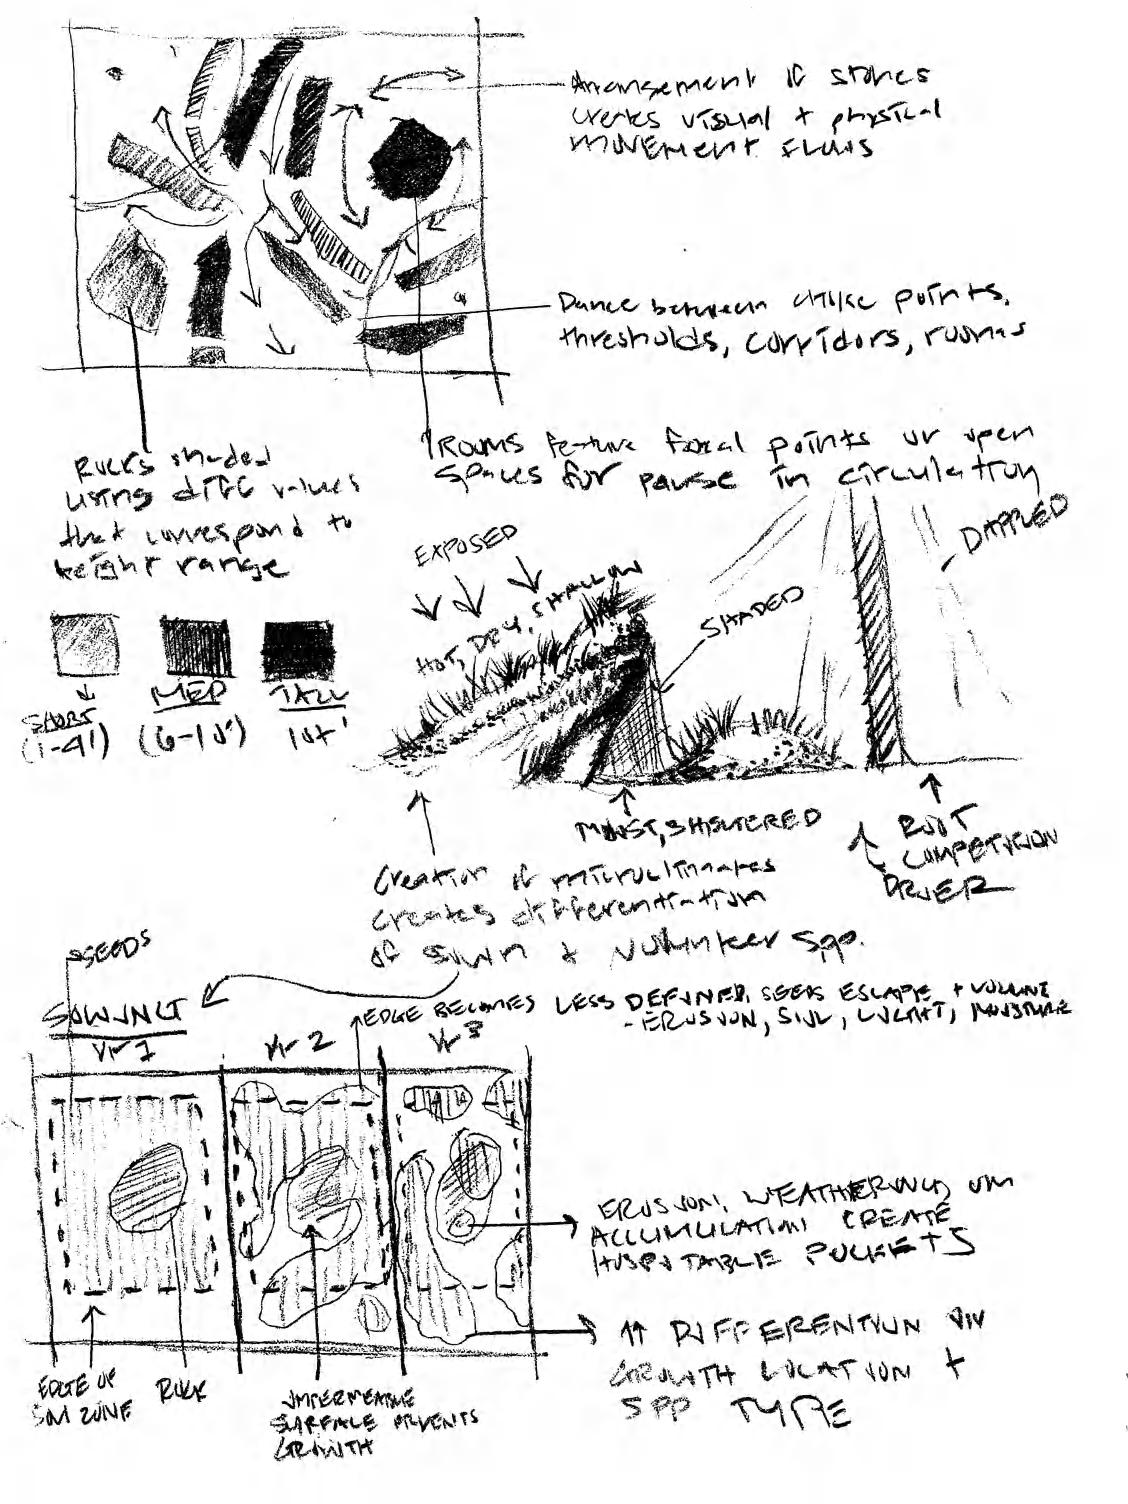 Arrangement of stones
creates visual + physical
movement flows
Dance between choke points,
thresholds, corridors, rooms
Rooms feature focal points or open
spaces for pause in circulation
Rocks shaded
using diff values
that correspond to
height range
SHORT
(1-4')
MED
(6-10')
TALL
10+'
EXPOSED
HOT, DRY, SHALLOW
SHADED
DAPPLED
MOIST, SHELTERED
ROOT
COMPETITION
DRIER
Creation of microclimates
creates differentiation
of sown + volunteer spp.
SEEDS
Yr 1
Yr 2
Yr 3
EDGE BECOMES LESS DEFINED, SEEDS ESCAPE +
- EROSION, SOIL, LIGHT, MOISTURE
EROSION, WEATHERING, OM
ACCUMULATION CREATE
HOSPITABLE POCKETS
↑↑ DIFFERENTIATION
GROWTH LOCATION +
SPP TYPE
EDGE OF
SOW ZONE
ROCK
IMPERMEABLE
SURFACE PREVENTS
GROWTH